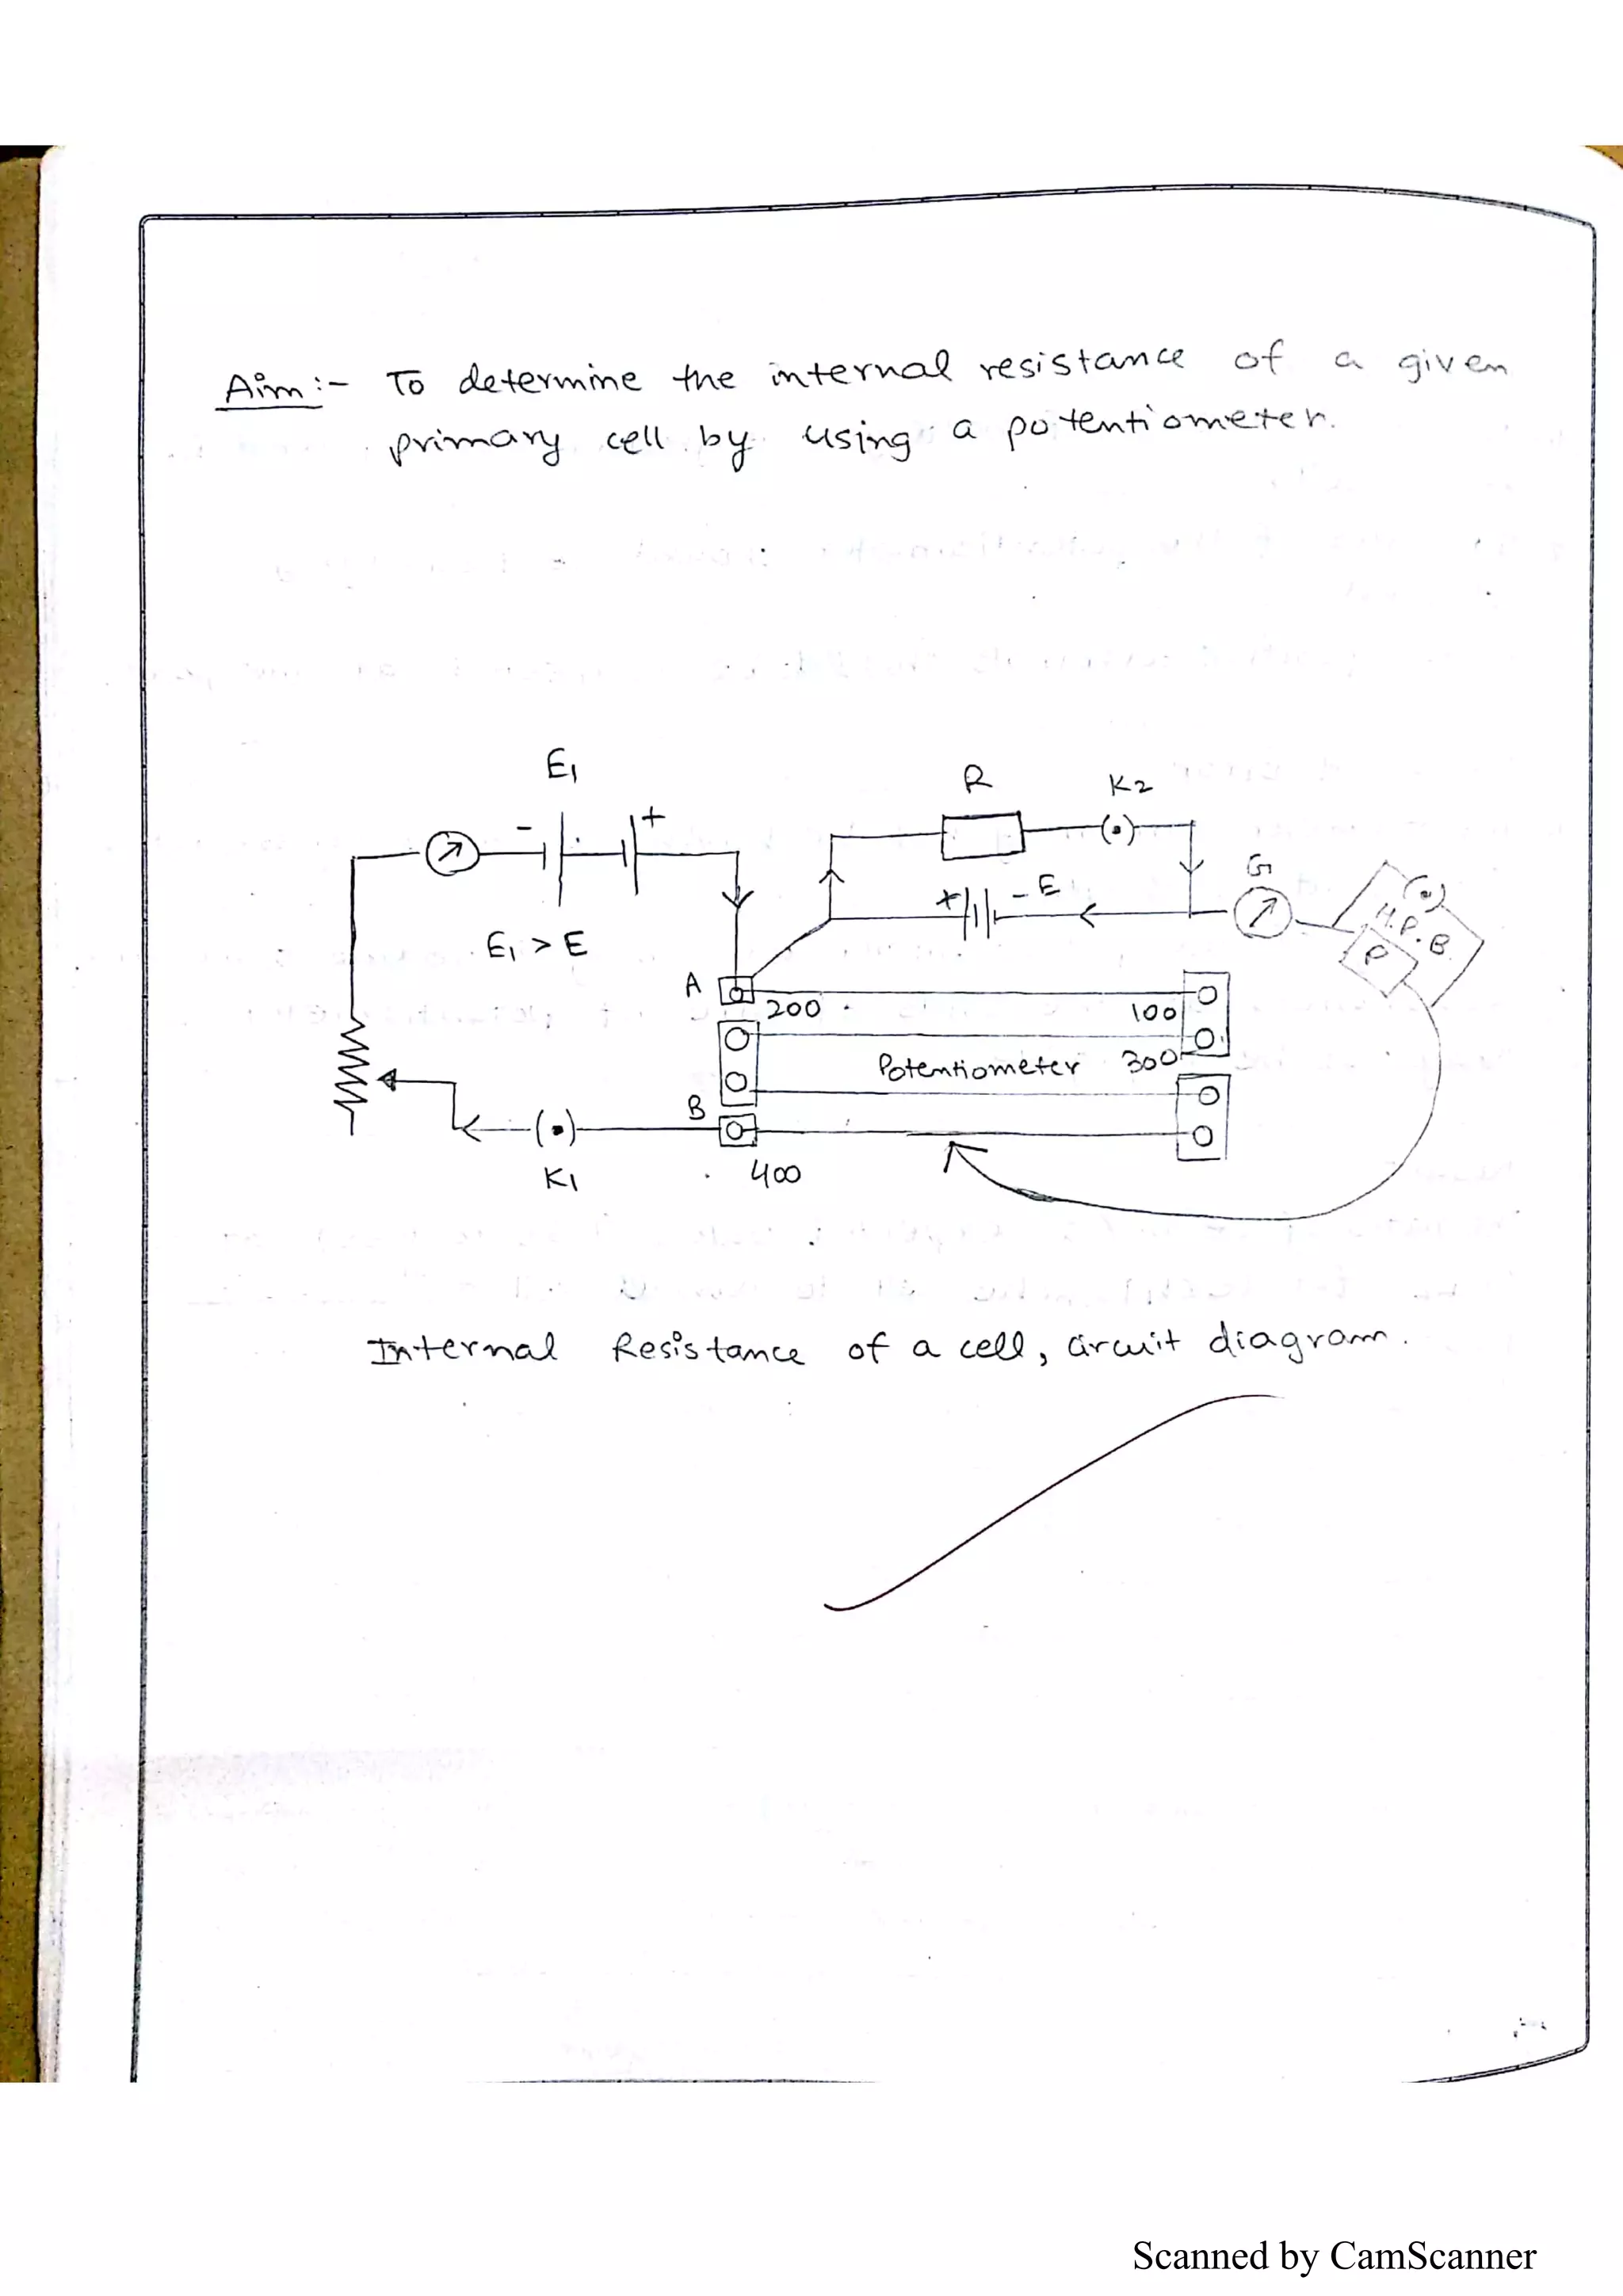 Aim :- To determine the internal resistance of a given
primary cell by using a potentiometer.
E1
- +
E1 > E
R
K2
+ - E
G
(•)
H.P.B
P
A
200
100
Potentiometer
300
B
400
K1
Internal Resistance of a cell, circuit diagram.
Scanned by CamScanner